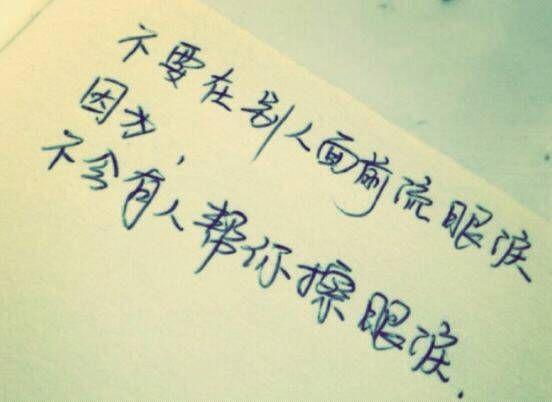 不要在别人面前流眼泪
因为,
不会有人帮你擦眼泪.